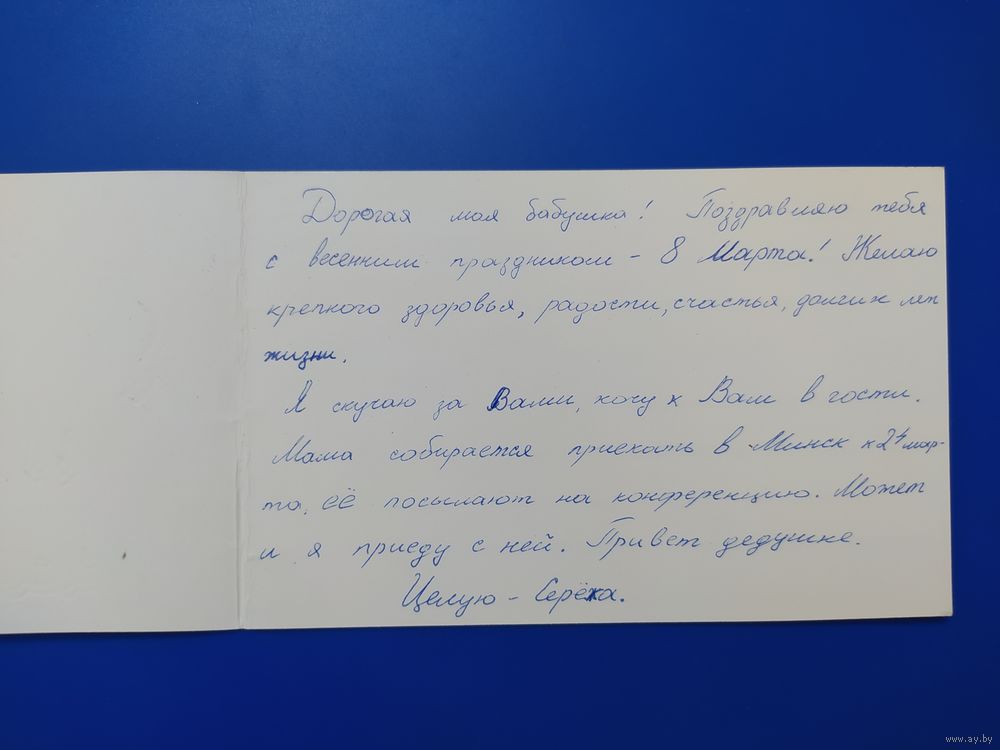 Дорогая моя бабушка! Поздравляю тебя
с весенним праздником - 8 Марта! Желаю
крепкого здоровья, радости, счастья, долгих лет
жизни.
Я скучаю за Вами, хочу к Вам в гости.
Мама собирается приехать в Минск к 24 мар-
та, её посылают на конференцию. Может
и я приеду с ней. Привет дедушке.
Целую - Серёха.
www.ay.by